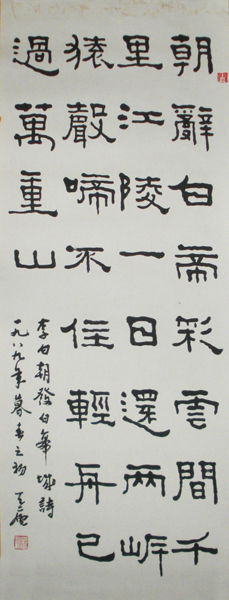 朝辭白帝彩雲間千
里江陵一日還兩岍
猿聲啼不住輕舟已
過萬重山
李白朝發白帝城詩
一九八九年暮春之初